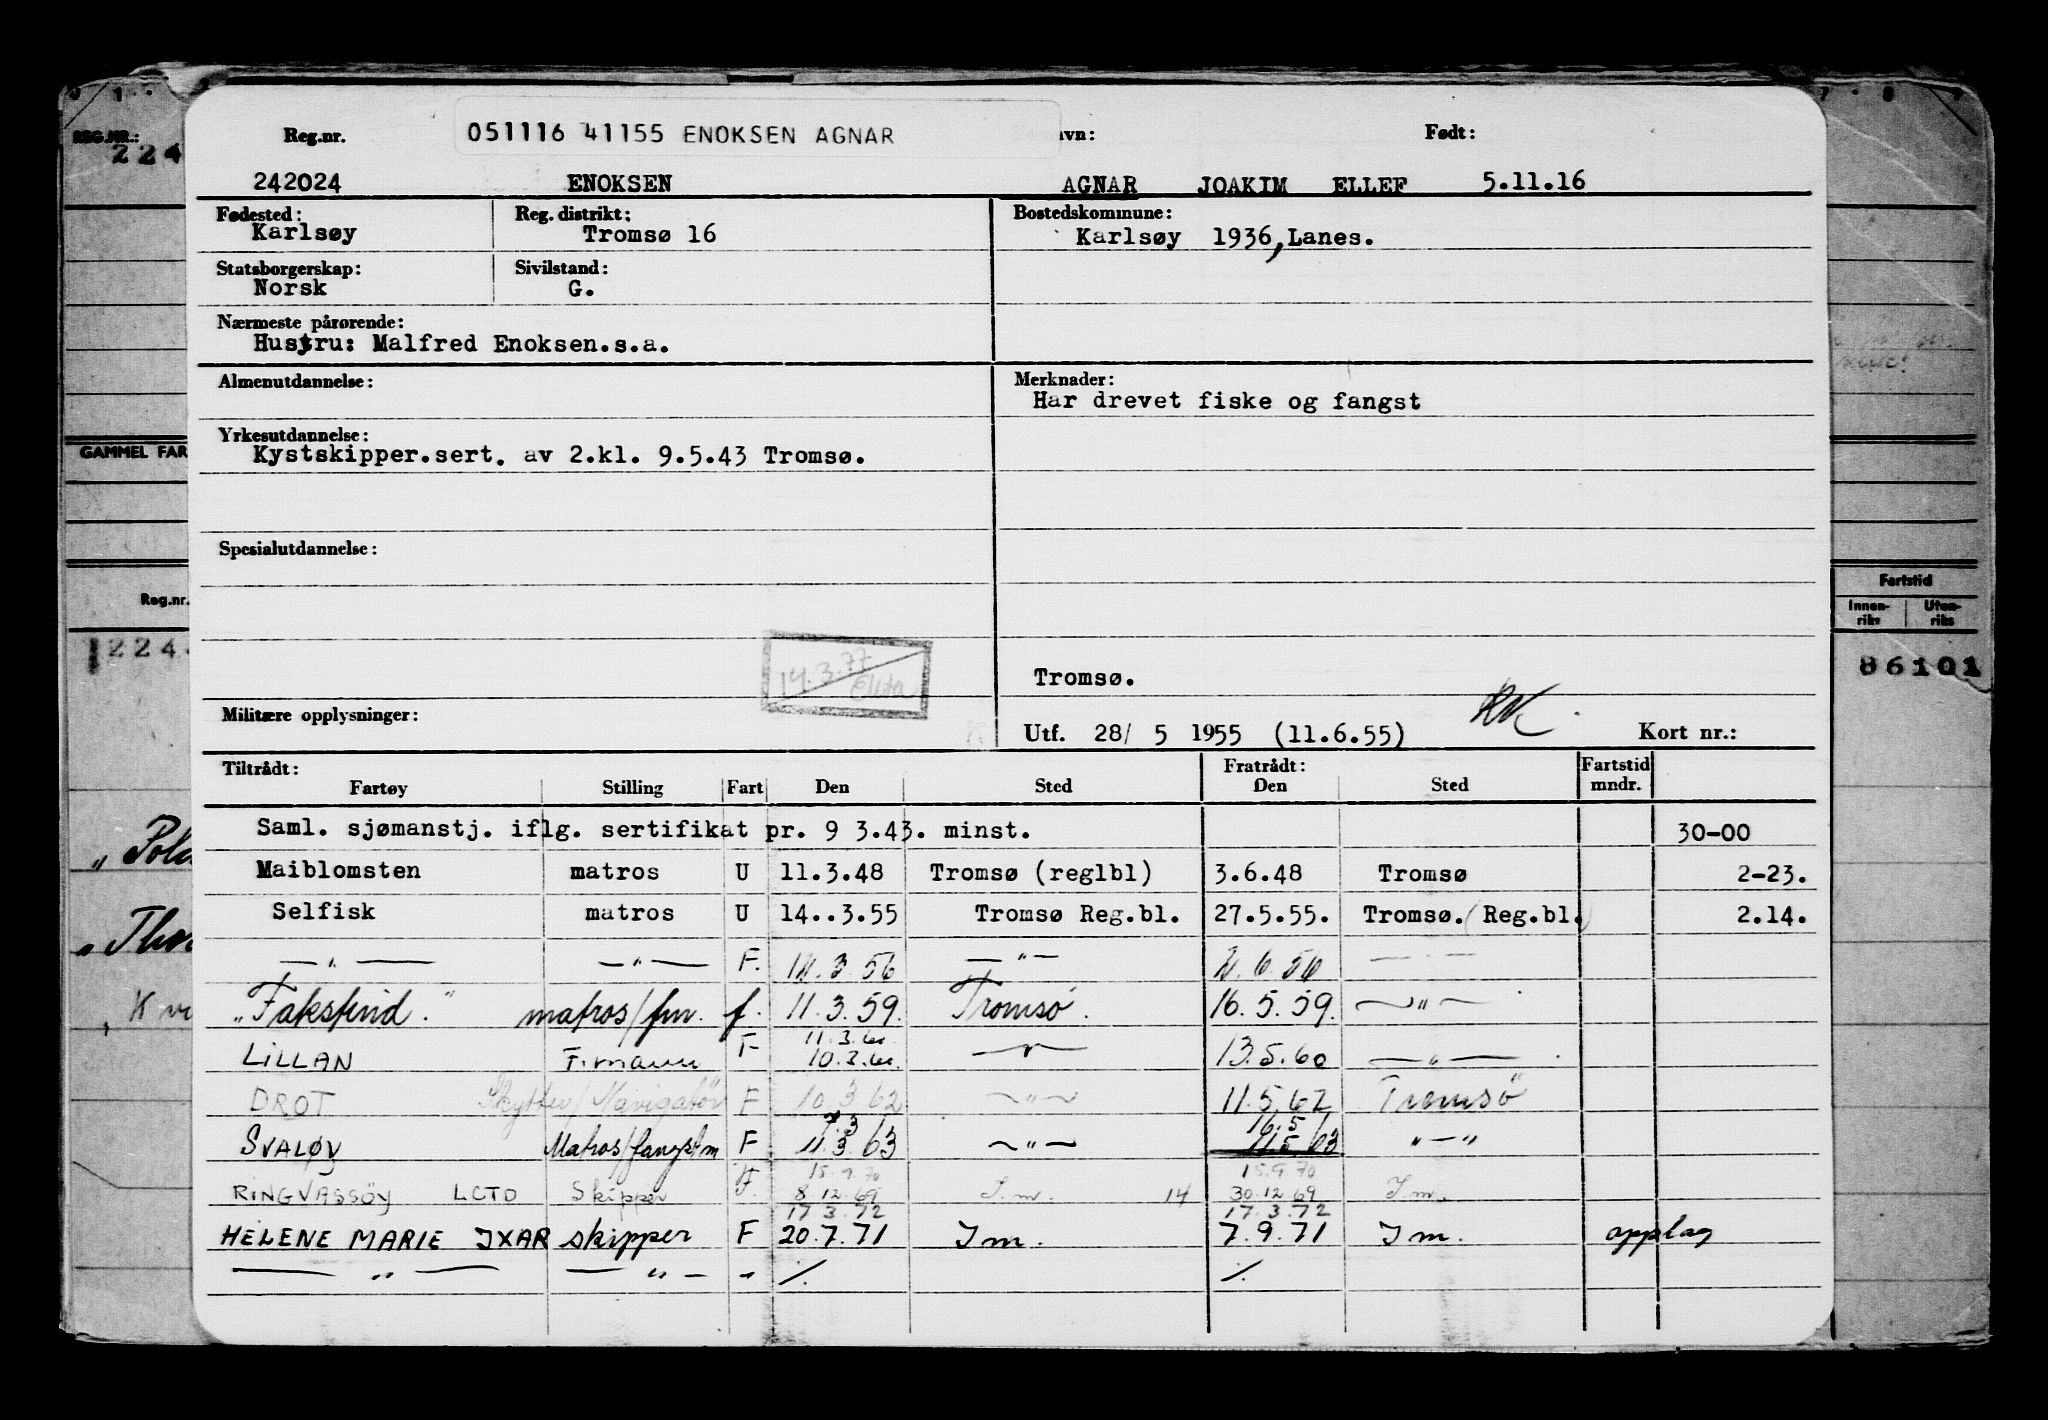 REG.NR.:
224
GAMMEL FAR
Reg.nr.
224
„ Pol
„ Tho
„ K v
Fartstid
Innen-riks Uten-riks
86101
Reg.nr. 051116 41155 ENOKSEN AGNAR vn: Født:
242024 ENOKSEN AGNAR JOAKIM ELLEF 5.11.16
Fødested: Reg. distrikt: Bostedskommune:
Karlsøy Tromsø 16 Karlsøy 1936, Lanes.
Statsborgerskap: Sivilstand:
Norsk G.
Nærmeste pårørende:
Hustru: Malfred Enoksen.s.a.
Almenutdannelse: Merknader:
Har drevet fiske og fangst
Yrkesutdannelse:
Kystskipper.sert. av 2.kl. 9.5.43 Tromsø.
Spesialutdannelse:
14.3.77
Tromsø.
Militære opplysninger: Utf. 28/ 5 1955 (11.6.55) Kort nr.:
Tiltrådt: Fratrådt: Fartstid
Fartøy Stilling Fart Den Sted Den Sted mndr.
Saml. sjømanstj. iflg. sertifikat pr. 9 3.43. minst. 30-00
Maiblomsten matros U 11.3.48 Tromsø (reglbl) 3.6.48 Tromsø 2-23.
Selfisk matros U 14..3.55 Tromsø Reg.bl. 27.5.55. Tromsø. (Reg.bl.) 2.14.
— „ — — „ — F. 3.56 — „ — 2.6.56 — „ —
„Faksfind." matros/fm. f. 11.3.59. Tromsø. 16.5.59. — „ —
11.3.60
LILLAN F.mann F 10.3.60. — „ — 13.5.60 — „ —
DROT Skytter/Navigatør F 10.3.62 — „ — 11.5.62 Tromsø
7.3 16.5
SVALØY Matros/fangstm F 11.3.63 — „ — 11.5.63 „ — „
15.9.70 15.9.70
RINGVASSØY LCTD Skipper F. 8.12.69 I.m. 14 30.12.69 I.m.
17.3.72 17.3.72
HELENE MARIE JXAR skipper F 20.7.71 I m. 7.9.71 I m. opplag
— „ — — „ — „ ./. ./.